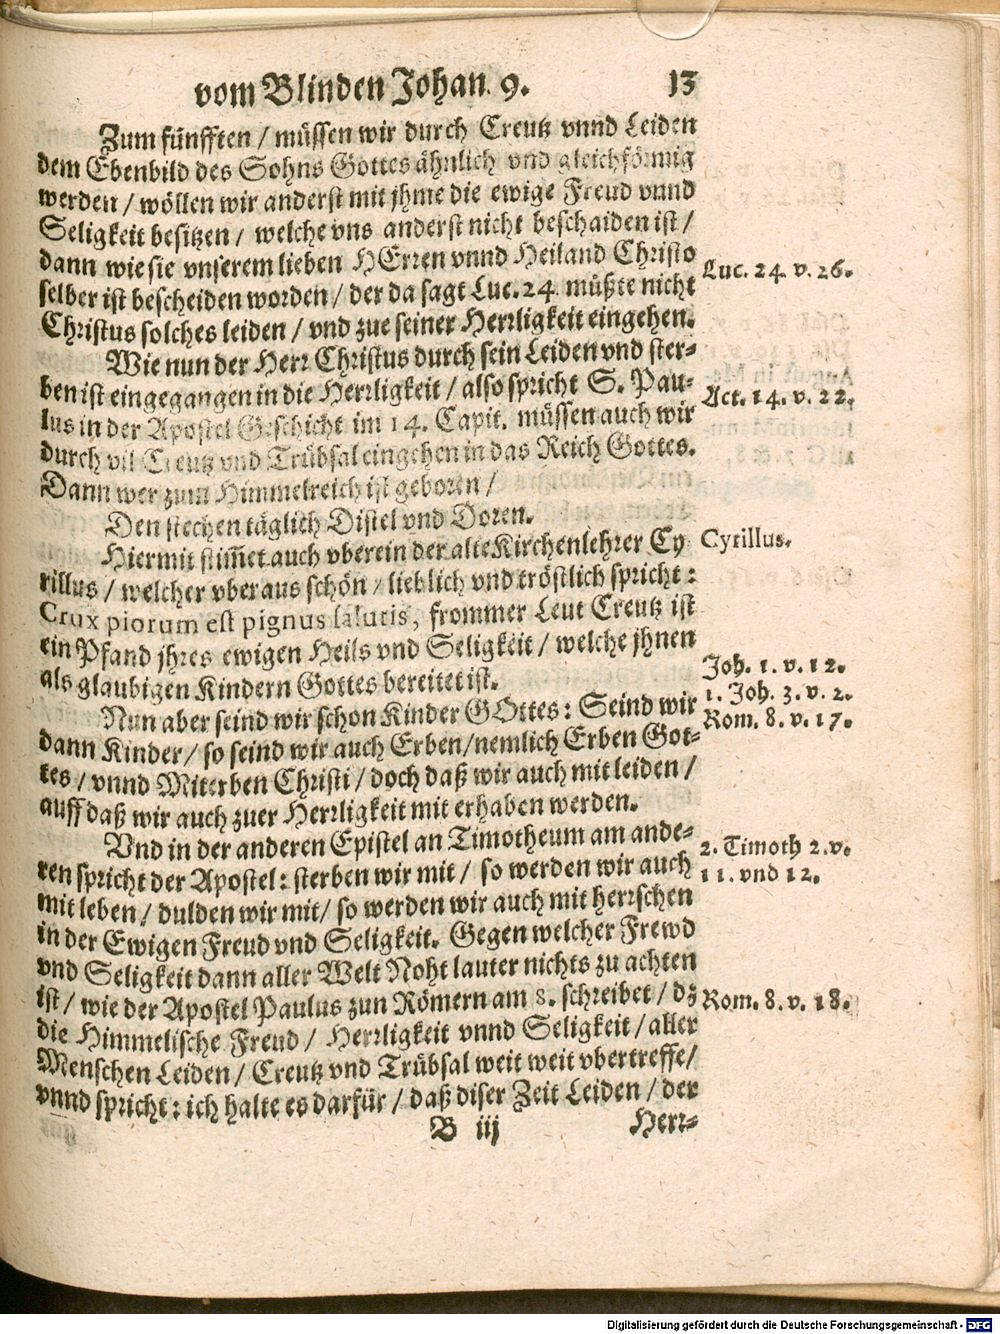 vom Blinden Johan. 9. 13
Zum fünfften / müssen wir durch Creutz vnnd Leiden
dem Ebenbild des Sohns Gottes ähnlich vnd gleichförmig
werden / wöllen wir anderst mit jhme die ewige Freud vnnd
Seligkeit besitzen / welche vns anderst nicht beschaiden ist /
dann wie sie vnserem lieben HErren vnnd Heiland Christo
selber ist bescheiden worden / der da sagt Luc. 24. müßte nicht
Christus solches leiden / vnd zue seiner Herrligkeit eingehen.
Luc. 24. v. 26.
Wie nun der Herr Christus durch sein Leiden vnd ster-
ben ist eingegangen in die Herrligkeit / also spricht S. Pau-
lus in der Apostel Geschicht im 14. Capit. müssen auch wir
durch vil Creutz vnd Trübsal eingehen in das Reich Gottes.
Dann wer zum Himmelreich ist geboren /
Act. 14. v. 22.
Den stechen täglich Distel vnd Doren.
Hiermit stim̃et auch vberein der alte Kirchenlehrer Cy
rillus / welcher vberaus schön / lieblich vnd tröstlich spricht:
Crux piorum est pignus salutis, frommer Leut Creutz ist
ein Pfand jhres ewigen Heils vnd Seligkeit / welche jhnen
als glaubigen Kindern Gottes bereitet ist.
Cyrillus.
Nun aber seind wir schon Kinder GOttes: Seind wir
dann Kinder / so seind wir auch Erben / nemlich Erben Got-
tes / vnnd Miterben Christi / doch daß wir auch mit leiden /
auff daß wir auch zuer Herrligkeit mit erhaben werden.
Joh. 1. v. 12.
1. Joh. 3. v. 2.
Rom. 8. v. 17.
Vnd in der anderen Epistel an Timotheum am ande-
ren spricht der Apostel: sterben wir mit / so werden wir auch
mit leben / dulden wir mit / so werden wir auch mit herrschen
in der Ewigen Freud vnd Seligkeit. Gegen welcher Frewd
vnd Seligkeit dann aller Welt Noht lauter nichts zu achten
ist / wie der Apostel Paulus zun Römern am 8. schreibet / dz
die Himmelische Freud / Herrligkeit vnnd Seligkeit / aller
Menschen Leiden / Creutz vnd Trübsal weit weit vbertreffe /
vnnd spricht: ich halte es darfür / daß diser Zeit Leiden / der
2. Timoth 2. v.
11. vnd 12.
Rom. 8. v. 18.
B iij Herr-
Digitalisierung gefördert durch die Deutsche Forschungsgemeinschaft - DFG